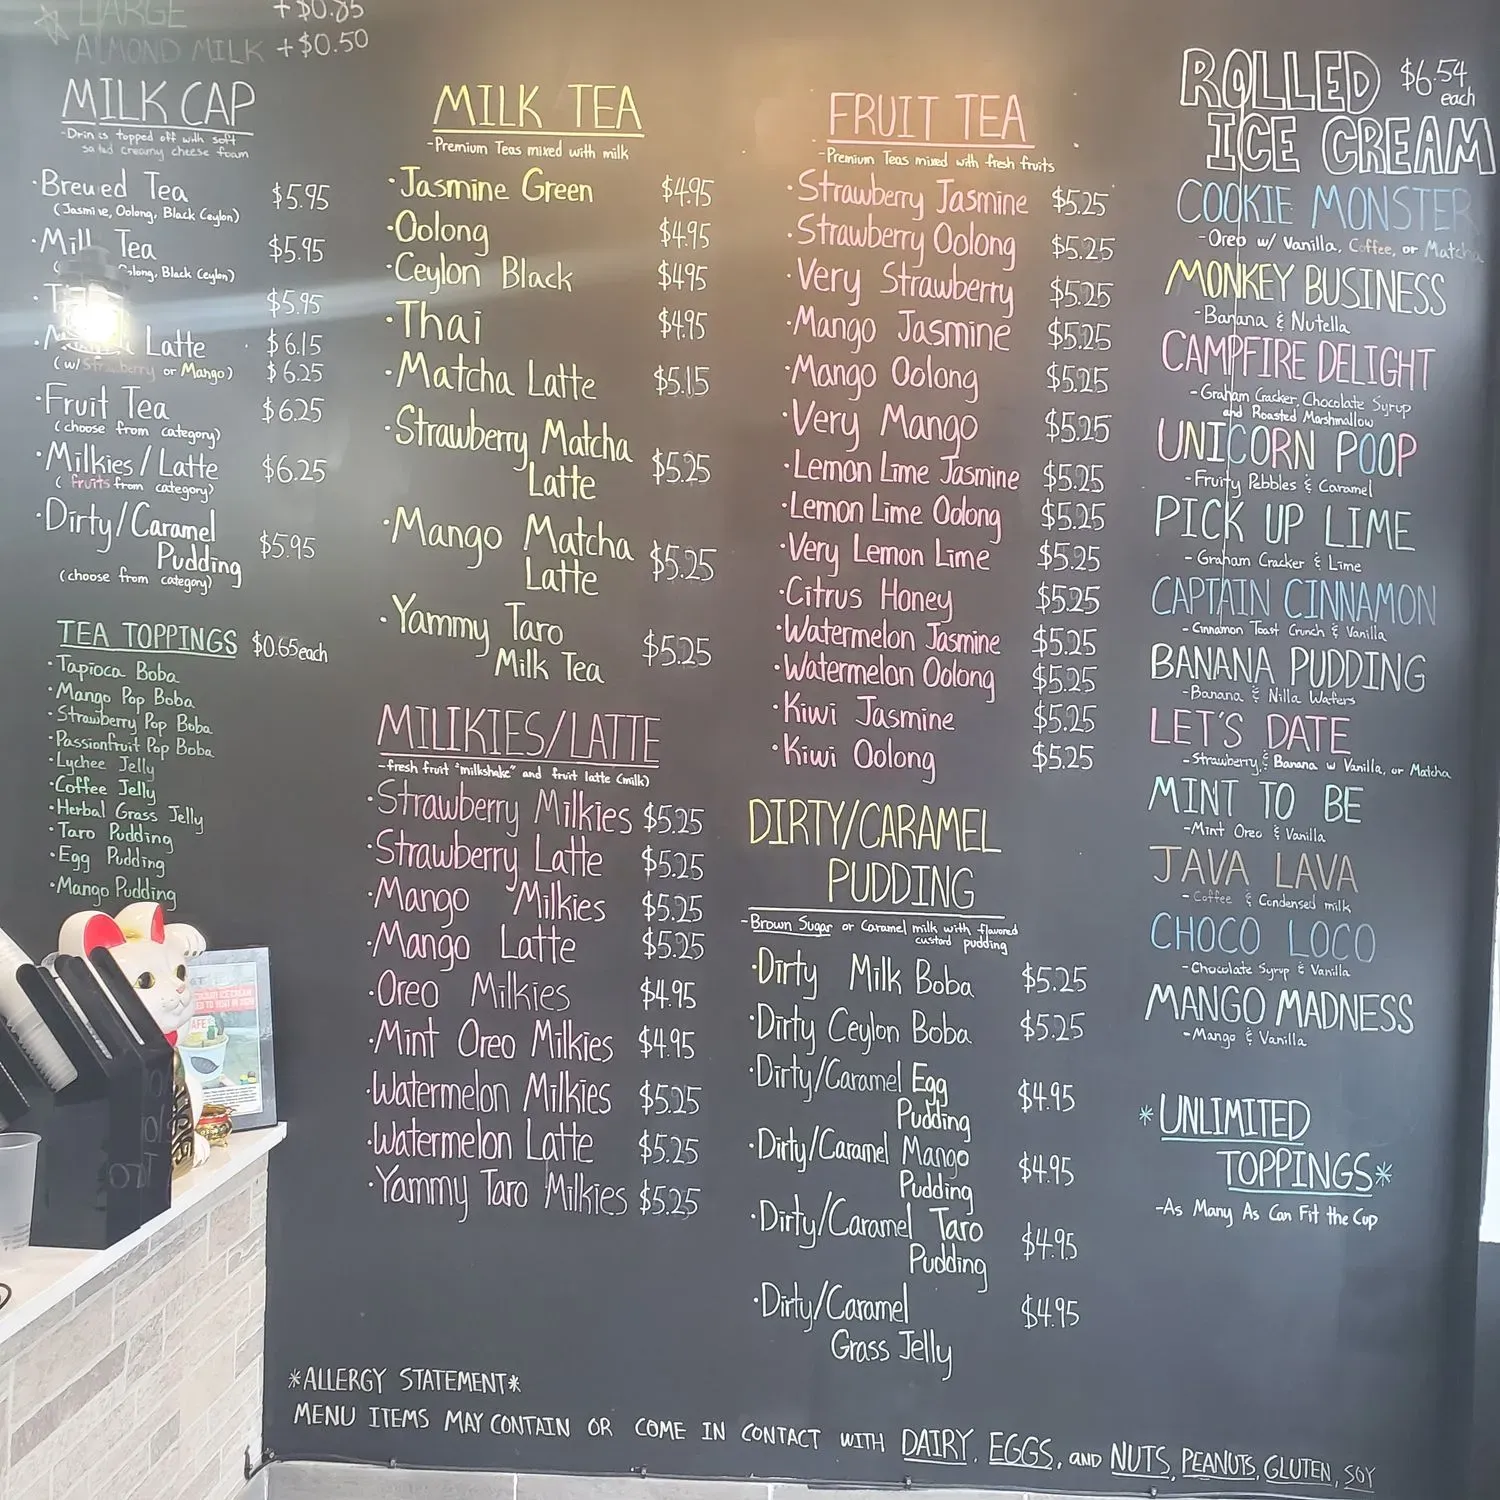 LARGE +$0.85
ALMOND MILK +$0.50
MILK CAP
-Drin is topped off with soft
salted creamy cheese foam
·Brewed Tea $5.95
(Jasmine, Oolong, Black Ceylon)
·Milk Tea $5.95
Oolong, Black Ceylon)
$5.95
Latte $6.15
(w/ Strawberry or Mango) $6.25
·Fruit Tea $6.25
(choose from category)
·Milkies/Latte $6.25
(fruits from category)
·Dirty/Caramel
Pudding $5.95
(choose from category)
TEA TOPPINGS $0.65 each
·Tapioca Boba
·Mango Pop Boba
·Strawberry Pop Boba
·Passionfruit Pop Boba
·Lychee Jelly
·Coffee Jelly
·Herbal Grass Jelly
·Taro Pudding
·Egg Pudding
·Mango Pudding
MILK TEA
-Premium Teas mixed with milk
·Jasmine Green $4.95
·Oolong $4.95
·Ceylon Black $4.95
·Thai $4.95
·Matcha Latte $5.15
·Strawberry Matcha
Latte $5.25
·Mango Matcha
Latte $5.25
·Yammy Taro
Milk Tea $5.25
MILIKIES/LATTE
-fresh fruit "milkshake" and fruit latte (milk)
·Strawberry Milkies $5.25
·Strawberry Latte $5.25
·Mango Milkies $5.25
·Mango Latte $5.25
·Oreo Milkies $4.95
·Mint Oreo Milkies $4.95
·Watermelon Milkies $5.25
·Watermelon Latte $5.25
·Yammy Taro Milkies $5.25
FRUIT TEA
-Premium Teas mixed with fresh fruits
·Strawberry Jasmine $5.25
·Strawberry Oolong $5.25
·Very Strawberry $5.25
·Mango Jasmine $5.25
·Mango Oolong $5.25
·Very Mango $5.25
·Lemon Lime Jasmine $5.25
·Lemon Lime Oolong $5.25
·Very Lemon Lime $5.25
·Citrus Honey $5.25
·Watermelon Jasmine $5.25
·Watermelon Oolong $5.25
·Kiwi Jasmine $5.25
·Kiwi Oolong $5.25
DIRTY/CARAMEL
PUDDING
-Brown Sugar or Caramel milk with flavored
custard pudding
·Dirty Milk Boba $5.25
·Dirty Ceylon Boba $5.25
·Dirty/Caramel Egg
Pudding $4.95
·Dirty/Caramel Mango
Pudding $4.95
·Dirty/Caramel Taro
Pudding $4.95
·Dirty/Caramel
Grass Jelly $4.95
ROLLED $6.54
each
ICE CREAM
COOKIE MONSTER
-Oreo w/ Vanilla, Coffee, or Matcha
MONKEY BUSINESS
-Banana & Nutella
CAMPFIRE DELIGHT
-Graham Cracker, Chocolate Syrup
and Roasted Marshmallow
UNICORN POOP
-Fruity Pebbles & Caramel
PICK UP LIME
-Graham Cracker & Lime
CAPTAIN CINNAMON
-Cinnamon Toast Crunch & Vanilla
BANANA PUDDING
-Banana & Nilla Wafers
LET'S DATE
-Strawberry & Banana w Vanilla, or Matcha
MINT TO BE
-Mint Oreo & Vanilla
JAVA LAVA
-Coffee & Condensed milk
CHOCO LOCO
-Chocolate Syrup & Vanilla
MANGO MADNESS
-Mango & Vanilla
*UNLIMITED
TOPPINGS*
-As Many As Can Fit the Cup
*ALLERGY STATEMENT*
MENU ITEMS MAY CONTAIN OR COME IN CONTACT WITH DAIRY, EGGS, AND NUTS, PEANUTS, GLUTEN, SOY